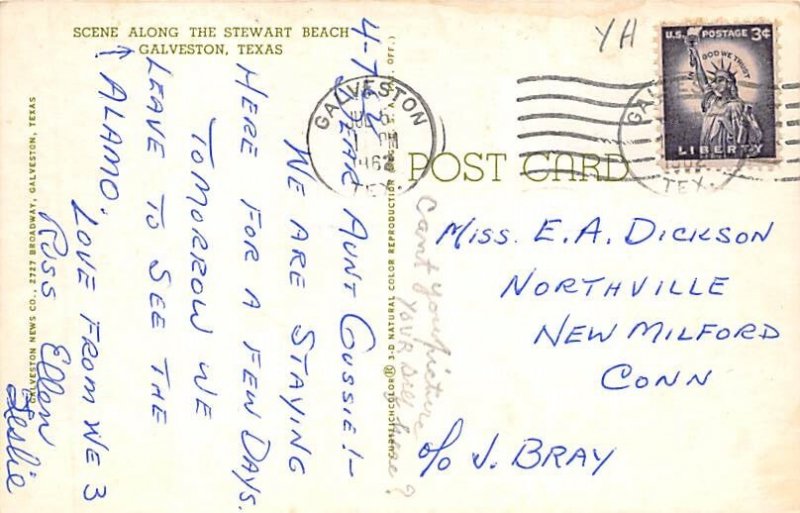 SCENE ALONG THE STEWART BEACH
GALVESTON, TEXAS
DEAR AUNT GUSSIE!-
WE ARE STAYING
HERE FOR A FEW DAYS.
TOMORROW WE
LEAVE TO SEE THE
↑ ALAMO.
LOVE FROM WE 3
Russ Ellen
Leslie
GALVESTON NEWS CO., 2727 BROADWAY, GALVESTON, TEXAS
3-D NATURAL COLOR REPRODUCTION
POST CARD
GALVESTON
TEX.
YH
U.S. POSTAGE 3¢
IN GOD WE TRUST
LIBERTY
TEX.
MISS. E.A. DICKSON
NORTHVILLE
NEW MILFORD
CONN
c/o J. BRAY
Cant you picture